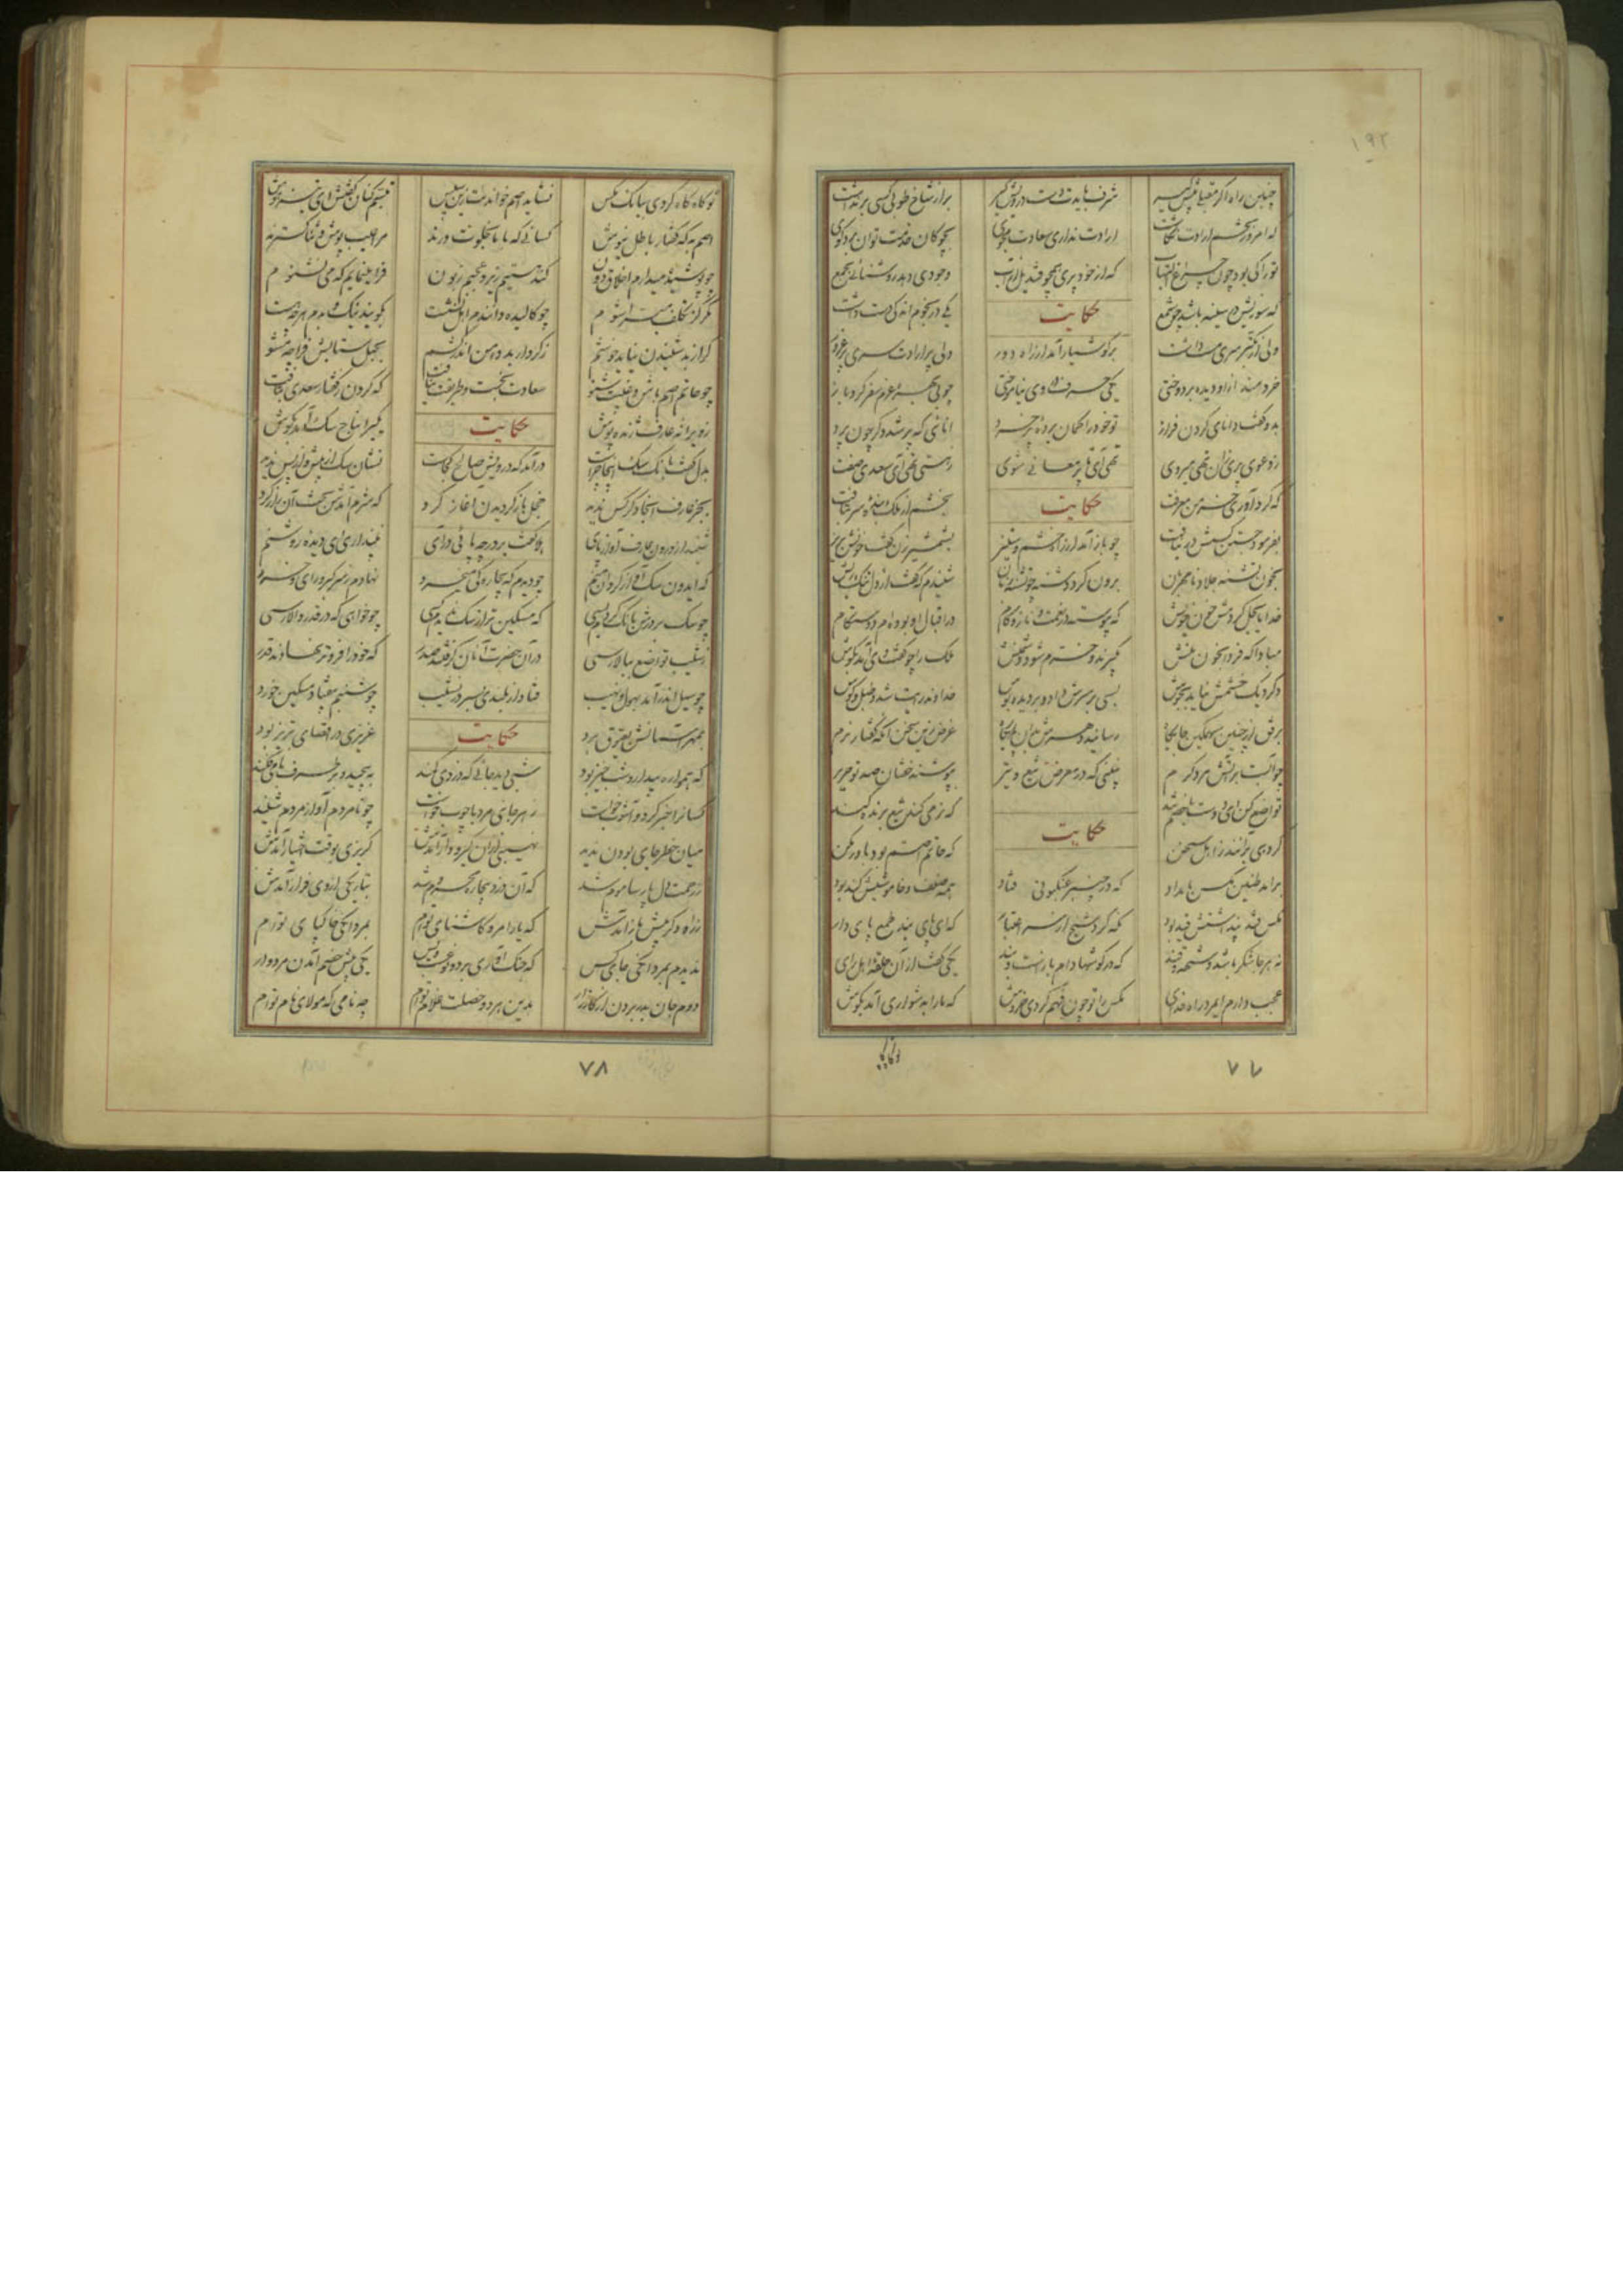 ۱۹۲
چنین راه اگر مقبلی پیش گیر شرف بایدت دست درویش گیر بر از شاخ طوبی کسی برنداشت
که امروز تخم ارادت نکاشت ارادت نداری سعادت مجوی بچوکان خدمت توان برد کوی
تورا کی بود چون چراغ التهاب که از خود پری همچو قندیل از آب وجودی دهد روشنائی بجمع
که سوزیش در سینه باشد چو شمع حکایت یکی در نجوم اندکی دست داشت
ولی از تکبر سری مست داشت بر کوشیار آمد از راه دور دلی پر ارادت سری پر غرور
خردمند از او دیده بردوختی یکی حرف در وی نیاموختی چو بی بهره عزم سفر کرد باز
بدو گفت دانای کردن فراز تو خود را کمان برده پر خرد انائی که پر شد دکر چون برد
ز دعوی پری زان تهی میروی تهی آی تا پر معانی شوی ز هستی تهی آی سعدی صفت
که کرد آوری خرمن معرفت حکایت بخشم از ملک بنده سر بتافت
بفرمود جستن کسش در نیافت چو باز آمد از راه خشم و ستیز بشمشیر زن گفت خونش بریز
بخون تشنه جلاد نامهربان برون کرد دشنه چو تشنه زبان شنیدم که گفت از دل تنک ریش
خدایا بحل کردمش خون خویش که پیوسته در نعمت و ناز و کام در اقبال او بوده ام دوستکام
مبادا که فردا بخون منش بکیرند و خرم شود دشمنش ملک را چو گفت وی آمد بکوش
دکر دیک خشمش نیامد بجوش بسی بر سرش داد و بر دیده بوس خداوند رایت شد و طبل و کوس
برفق از چنین سهمکین جایکاه رسانید دهرش بدان پایکاه غرض زین سخن آنکه گفتار نرم
چو آبست بر آتش مرد کرم نبینی که در معرض تیغ و تیر بپوشند خفتان صد تو حریر
تواضع کن ای دوست با خصم تند که نرمی کند تیغ برنده کند
کروهی برانند ز اهل سخن حکایت که حاتم اصم بود باور مکن
برآمد طنین مکس بامداد که در چنبر عنکبوتی فتاد همه ضعف و خاموشیش کید بود
مکس قند پنداشتش قید بود نکه کرد شیخ از سر اعتبار که ای پای بند طمع پای دار
نه هر جا شکر باشد و شهد و قند که در کوشها دام بازست و بند یکی گفت از آن حلقه اهل رای
عجب دارم ای مرد راه خدای مکس را تو چون فهم کردی خروش که ما را بدشواری آمد بکوش
تو آکاه
۷۷
تو آکاه کردی ببانک مکس نشاید اصم خواندت زین سپس تبسم کنان گفتش ای تیز هوش
اصم به که گفتار باطل نیوش کسانی که با ما بخلوت درند مرا عیب پوش و ثنا کسترند
چو پوشیده میدارم اخلاق دون کند هستیم زیر و عجبم زبون فرا مینمایم که می نشنوم
مکر کز تکلف مبرا شوم چو کالیده دانندم اهل نشست بکویند نیک و بدم هر چه هست
کر از بد شنیدن نیاید خوشم ز کردار بد دامن اندر کشم بحبل ستایش فرا چه مشو
چو حاتم اصم باش و غیبت شنو سعادت نجست و طریقت نیافت که کردن ز گفتار سعدی بتافت
ز ویرانه عارف ژنده پوش حکایت یکی را نباح سک آمد بکوش
بدل گفت بانک سک اینجا چراست درآمد که درویش صالح کجاست نشان سک از پیش و از پس ندید
بجز عارف آنجا دکر کس ندید خجل باز کردیدن آغاز کرد که شرم آمدش بحث آن راز کرد
شنید از درون عارف آواز پای هلا گفت بر در چه پائی درآی نپنداری ای دیده روشنم
که ایدون سک آواز کرد آن منم چو دیدم که بیچارکی میخرد نهادم ز سر کبر و رای و خرد
چو سک بر درش بانک کردم بسی که مسکین تر از سک ندیدم کسی چو خواهی که در قدر والا رسی
ز شیب تواضع ببالا رسی در آن حضرت آنان کرفتند صدر که خود را فروتر نهادند قدر
چو سیل اندر آمد بهول و نهیب فتاد از بلندی بسر در نشیب چو شبنم بیفتاد مسکین و خورد
بمهر آسمانش بعیوق برد حکایت عزیزی در اقصای تبریز بود
که همواره بیدار و شب خیز بود شبی دید جائی که دزدی کمند بپیچید و بر طرف بامی فکند
کسانرا خبر کرد و آشوب خاست ز هر جانبی مرد با چوب خاست چو نامردم آواز مردم شنید
میان خطر جای بودن ندید نهیبی از آن کیر و دار آمدش کریزی بوقت اختیار آمدش
ز رحمت دل پارسا موم شد که آن دزد بیچاره محروم شد بتاریکی از وی فراز آمدش
ز راه دکر پیش باز آمدش که یارا مرو کاشنای توام بمردانکی خاک پای توام
ندیدم بمردانکی چون تو کس که جنک آوری بر دو نوعست و بس یکی پیش خصم آمدن مردوار
دوم جان بدر بردن از کارزار بدین هر دو خصلت غلام توام چه نامی که مولای نام توام
۷۸